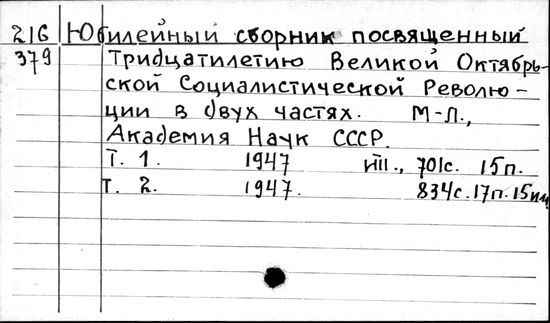 216 Юбилейный сборник посвященный
379 Тридцатилетию Великой Октябрь-
ской Социалистической Револю-
ции в двух частях. М-Л.,
Академия Наук СССР.
Т. 1. 1947 илл., 701с. 15п.
Т. 2. 1947. 834с. 17п. 15илл